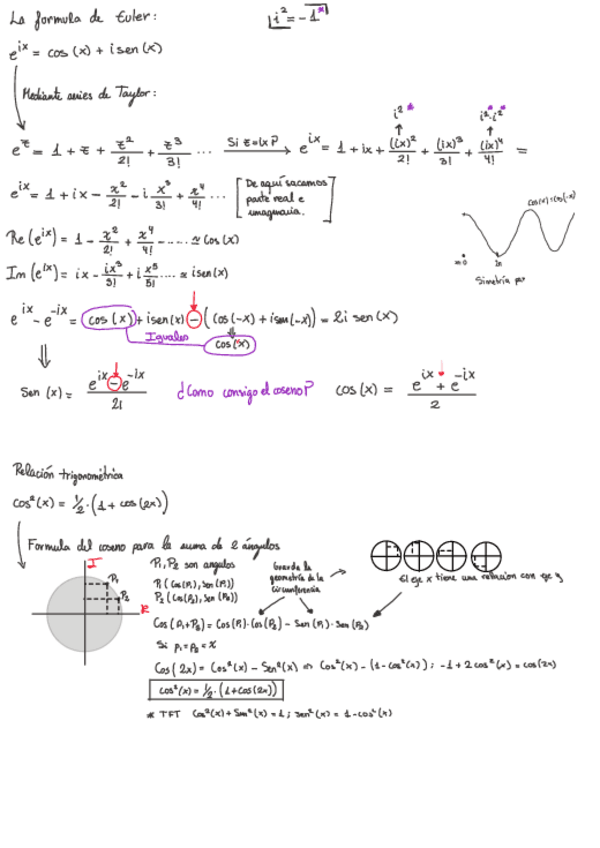 La formula de Euler:
i² = -1*
e^ix = cos(x) + i sen(x)
Mediante series de Taylor:
i²* i²·i²**
e^z = 1 + z + z²/2! + z³/3! ... Si z=ix? → e^ix = 1 + ix + (ix)²/2! + (ix)³/3! + (ix)⁴/4! =
e^ix = 1 + ix - x²/2! - i x³/3! + x⁴/4! ... [De aquí sacamos parte real e imaginaria.]
cos(x)=cos(-x)
Re(e^ix) = 1 - x²/2! + x⁴/4! - ..... ≈ cos(x)
Im(e^ix) = ix - ix³/3! + i x⁵/5! .... ≈ i sen(x)
Simetría
e^ix - e^-ix = cos(x) + i sen(x) - (cos(-x) + i sen(-x)) = 2i sen(x)
Iguales
cos(x)
Sen(x) = (e^ix - e^-ix)/2i ¿Como consigo el coseno? cos(x) = (e^ix + e^-ix)/2
Relación trigonométrica
cos²(x) = 1/2·(1 + cos(2x))
Formula del coseno para la suma de 2 ángulos
I
P₁
P₂
R
P₁, P₂ son angulos
P₁(Cos(P₁), Sen(P₁))
P₂(Cos(P₂), Sen(P₂))
Guarda la geometría de la circunferencia
El eje x tiene una relacion con eje y
Cos(P₁+P₂) = Cos(P₁)·Cos(P₂) - Sen(P₁)·Sen(P₂)
Si P₁=P₂=x
Cos(2x) = Cos²(x) - Sen²(x) ⇒ Cos²(x) - (1-cos²(x)); -1+2cos²(x) = cos(2x)
cos²(x) = 1/2·(1+Cos(2x))
* TFT Cos²(x)+Sen²(x)=1; sen²(x) = 1-cos²(x)